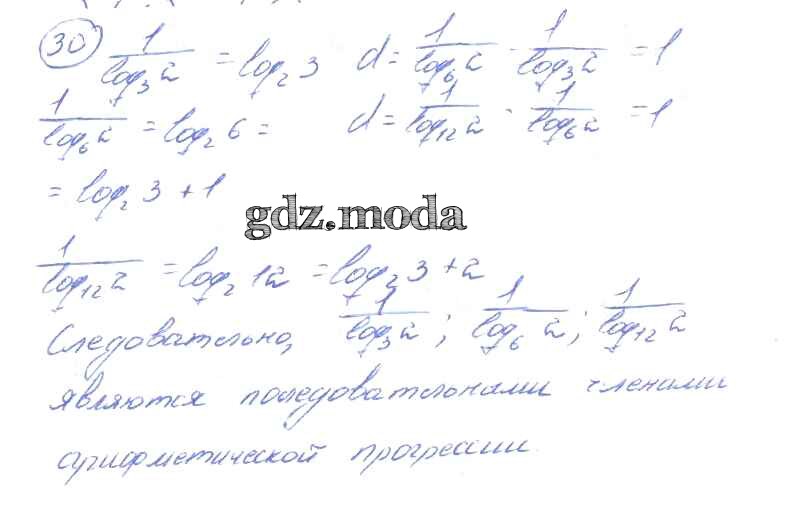 30 1/log₃2 = log₂3 d = 1/log₆2 - 1/log₃2 = 1
1/log₆2 = log₂6 = d = 1/log₁₂2 - 1/log₆2 = 1
= log₂3 + 1
gdz.moda
1/log₁₂2 = log₂12 = log₂3 + 2
Следовательно, 1/log₃2 ; 1/log₆2 ; 1/log₁₂2
являются последовательными членами
арифметической прогрессии.